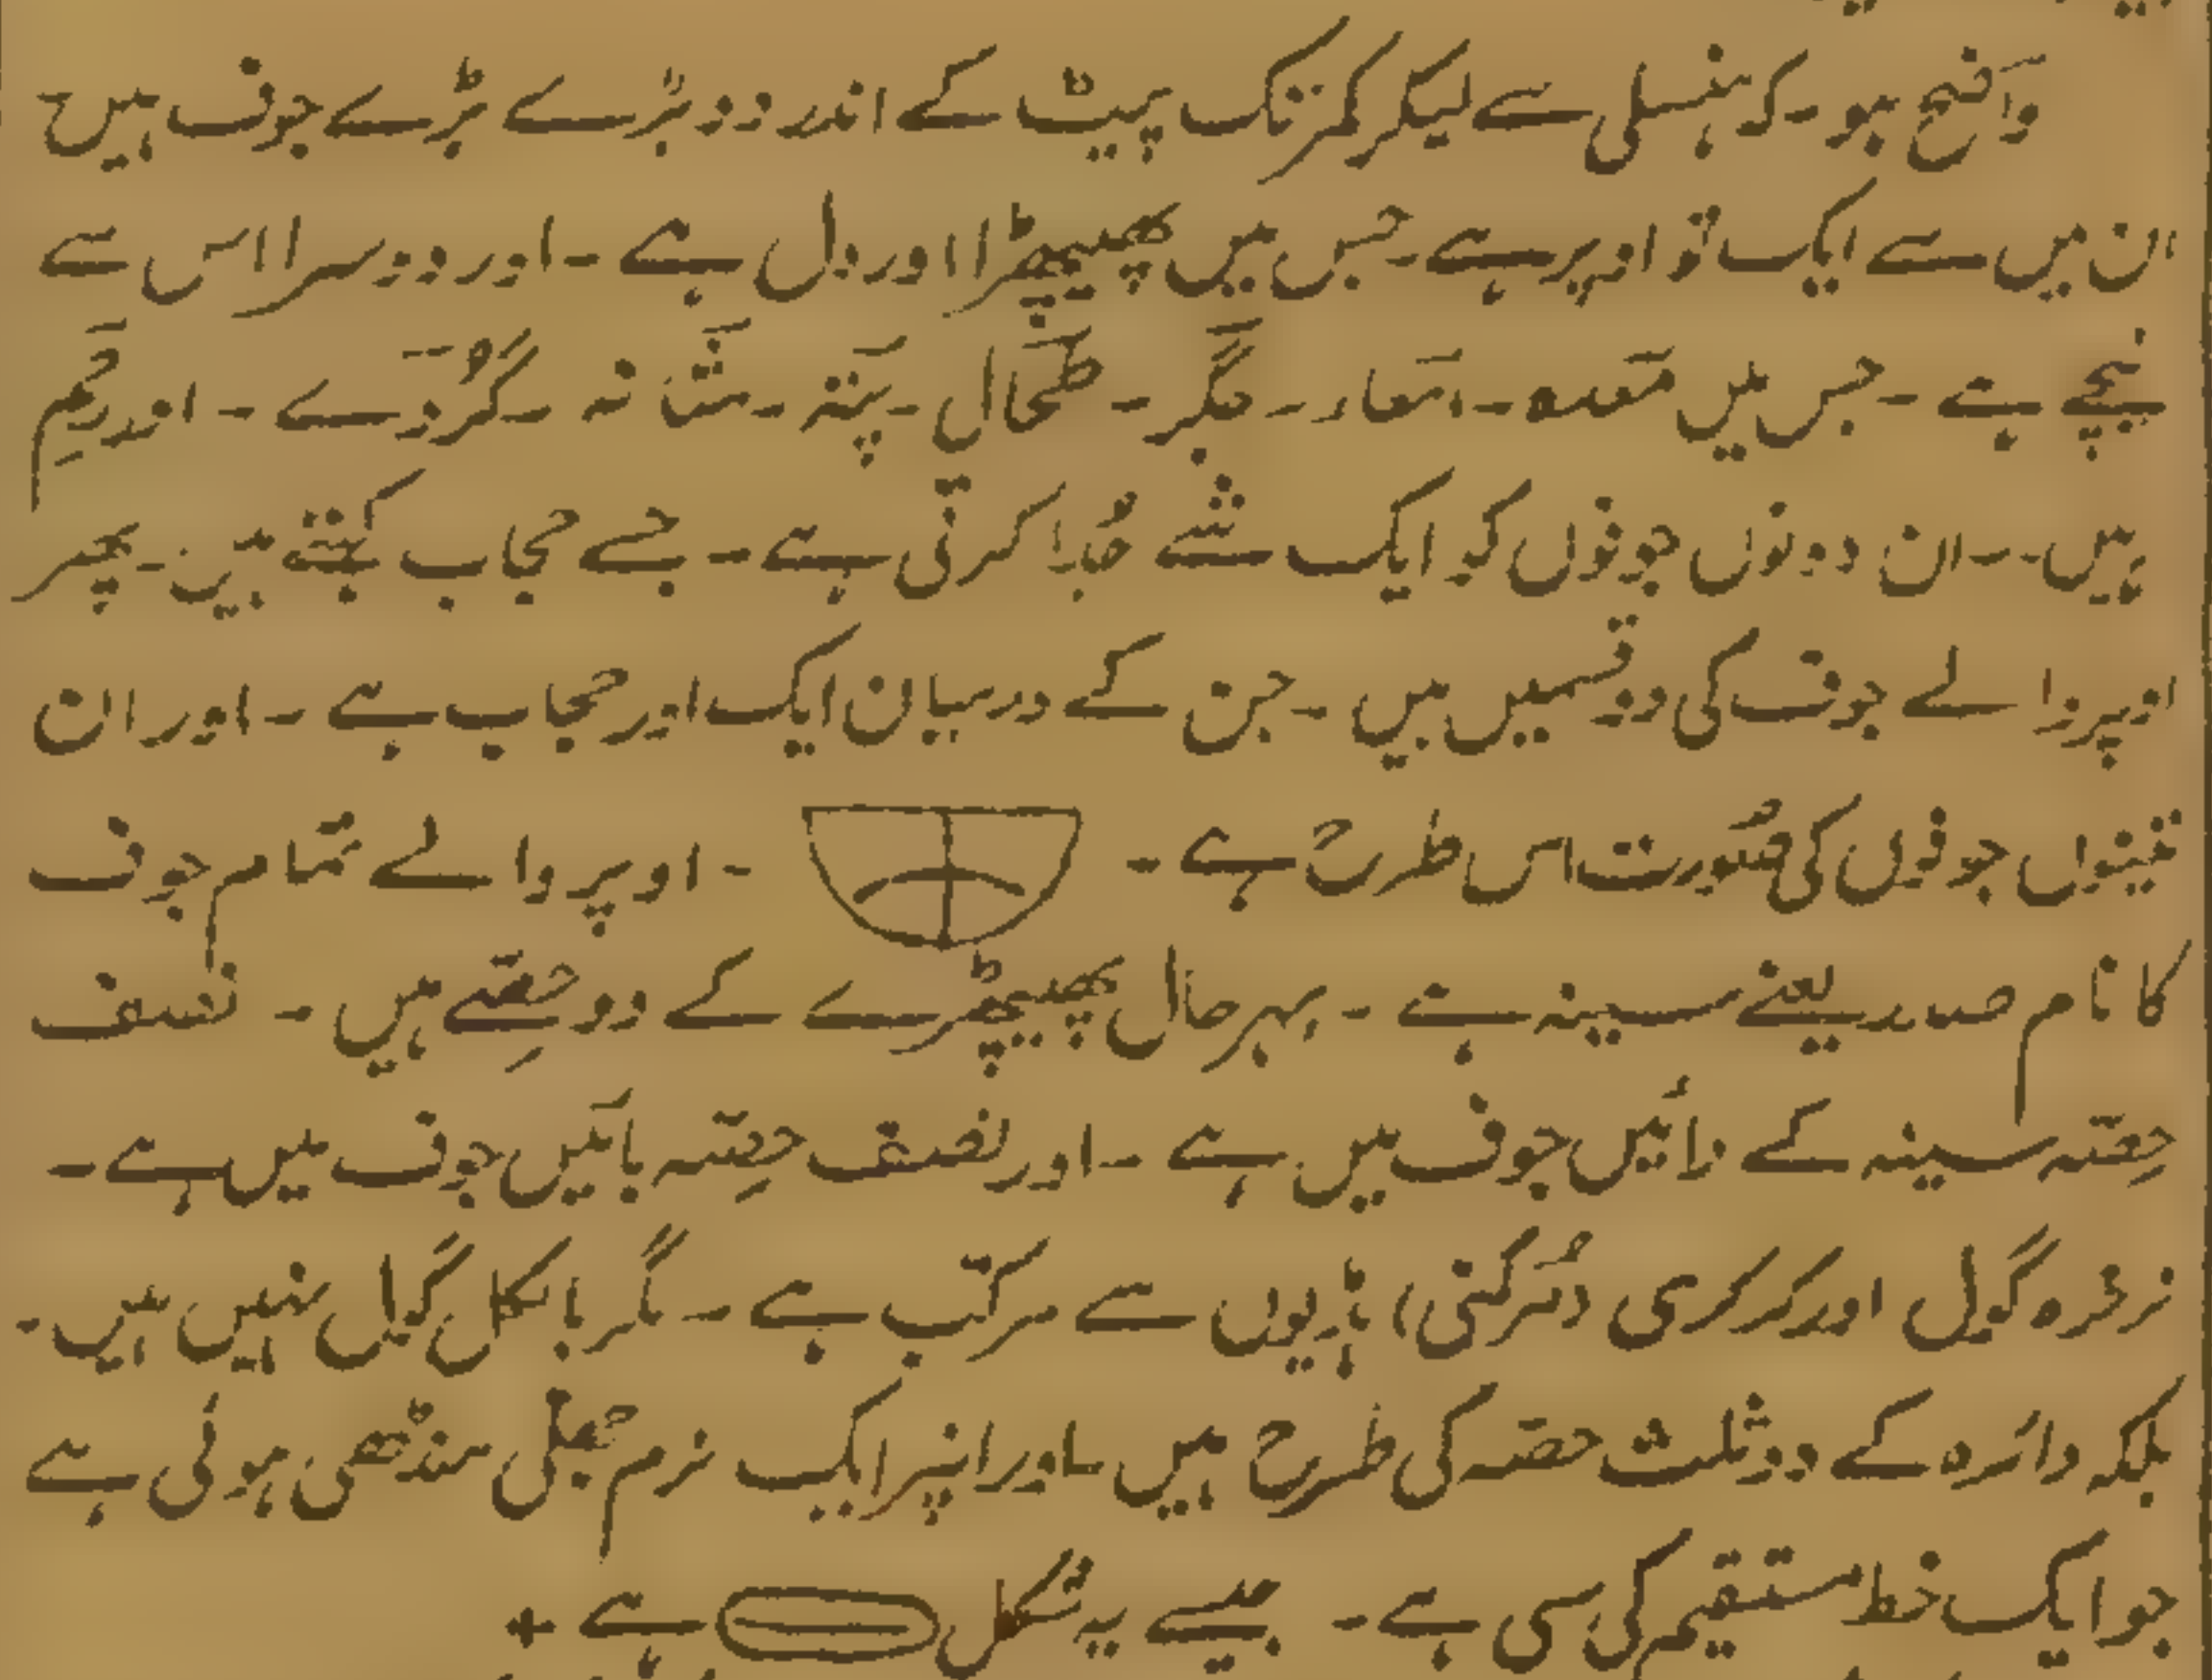 واضح ہو۔ کہ ہنسلی سے لیکر کمر تک پیٹ کے اندر دو بڑے بڑے جوف ہیں
ان میں سے ایک تو اوپر ہے۔ جس میں پھیپھڑا اور دل ہے ۔ اور دوسرا اس سے
نیچے ہے ۔ جس میں معدہ ۔ امعار ۔ جگر ۔ طحال ۔ پتہ ۔ مثانہ ۔ گردے ۔ اور رحم
ہیں ۔ ۔ ان دونوں جوفوں کو ایک شے جدا کرتی ہے ۔ جسے حجاب کہتے ہیں ۔ پھر
اوپر والے جوف کی دو قسمیں ہیں ۔ جن کے درمیان ایک اور حجاب ہے ۔ اور ان
تینوں جوفوں کی صورت اس طرح ہے ۔ ۔ اوپر والے تمام جوف
کا نام صدر یعنے سینہ ہے ۔ بہرحال پھیپھڑے کے دو حصے ہیں ۔ نصف
حصہ سینہ کے دائیں جوف میں ہے ۔ اور نصف حصہ بائیں جوف میں ہے ۔
نرخرہ گول اور کرکری (مرکنی) ہڈیوں سے مرکب ہے ۔ مگر بالکل گول نہیں ہیں ۔
بلکہ دائرہ کے دو ثلث حصہ کی طرح ہیں ۔ اور انپر ایک نرم جھلی منڈھی ہوئی ہے
جو ایک خط مستقیم کی سی ہے ۔ جیسے یہ شکل ہے +